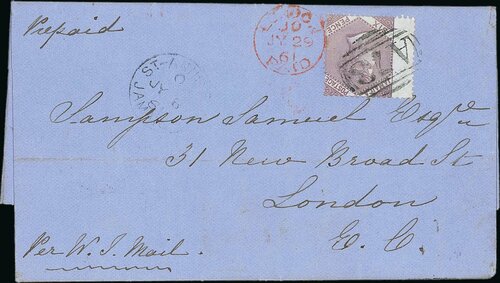 Prepaid
LONDON
JY 29
61
PAID
JY
Sampson Samuel Esqre
31 New Broad St
London
E. C.
Per W. I. Mail.
A
PENCE